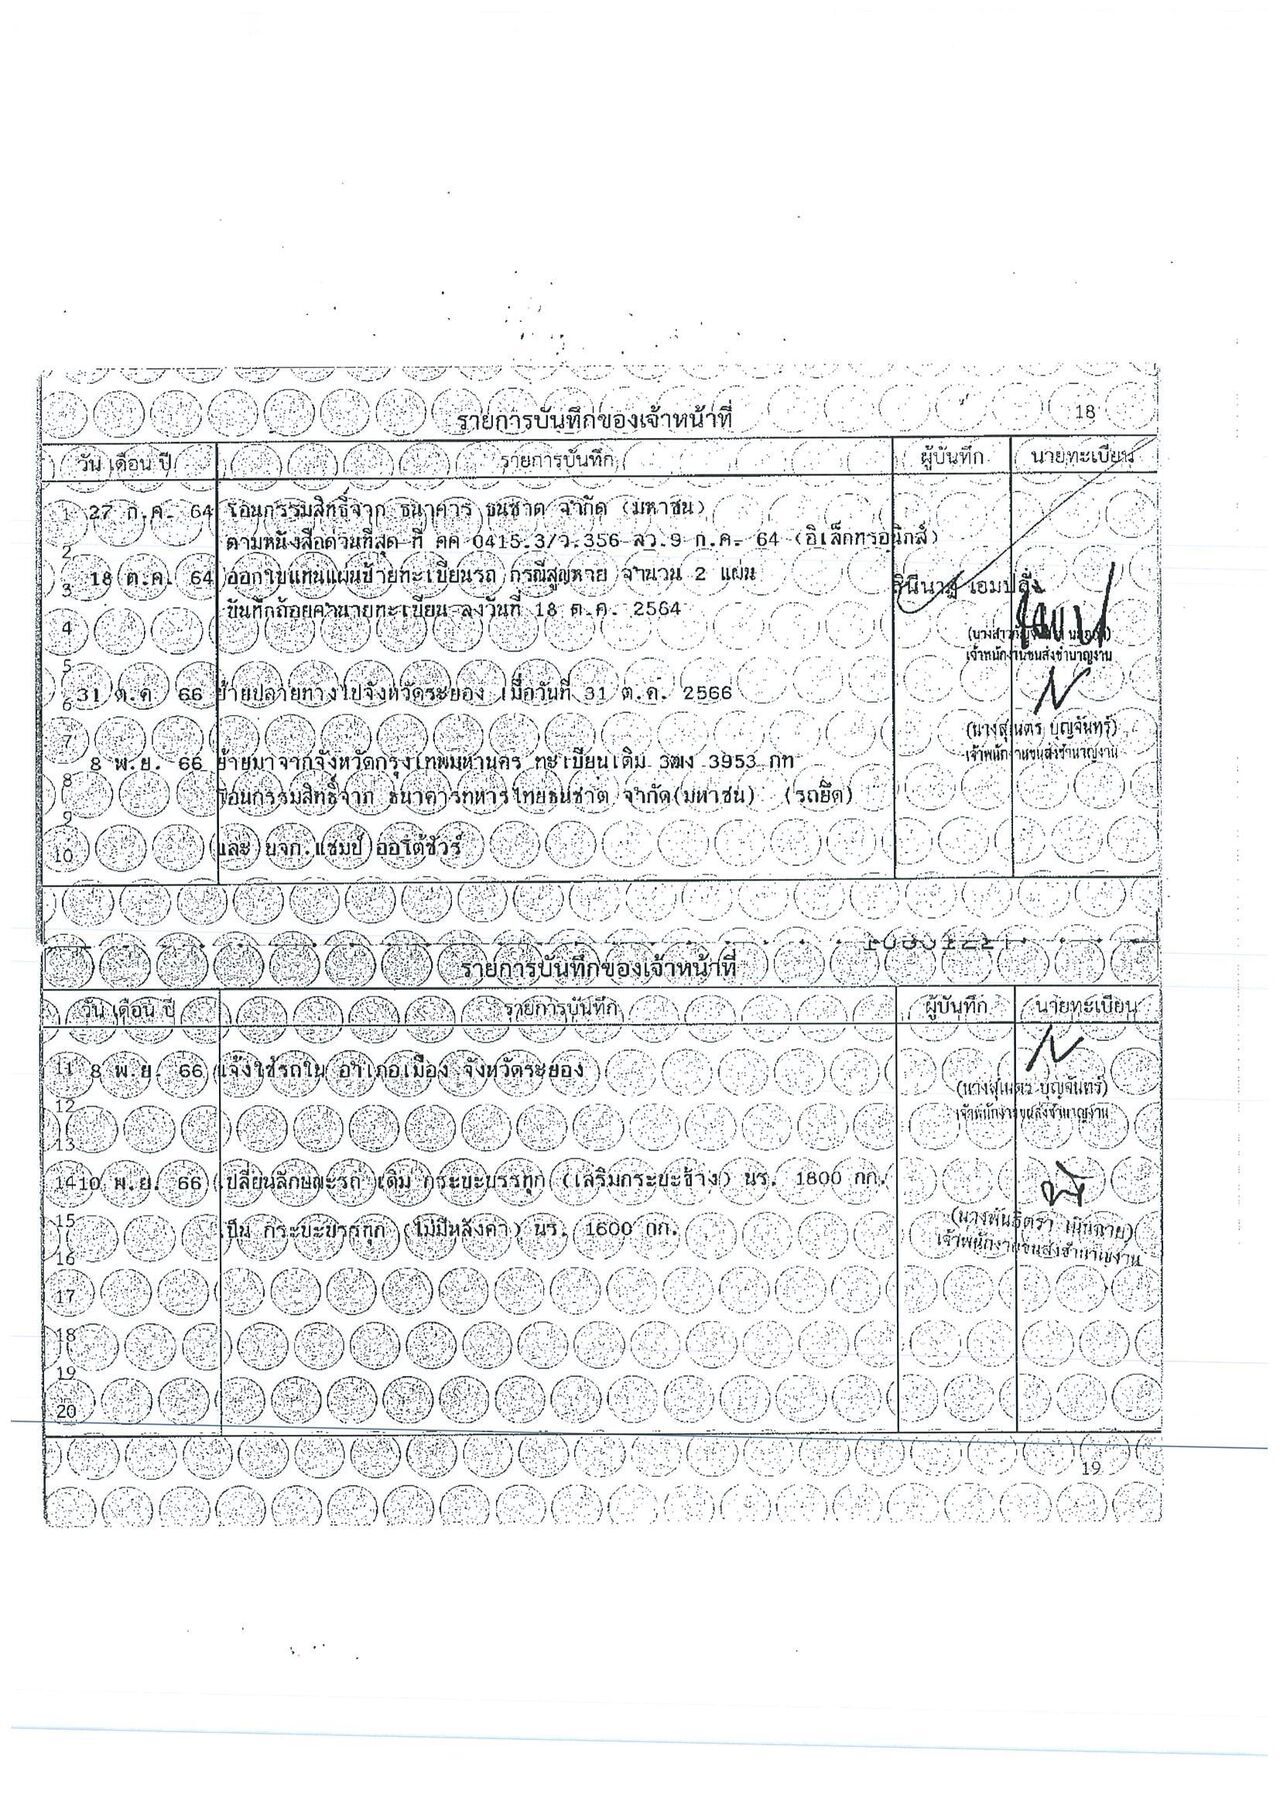 18
รายการบันทึกของเจ้าหน้าที่
วัน เดือน ปี รายการบันทึก ผู้บันทึก นายทะเบียน
1 27 ก.ค. 64 โอนกรรมสิทธิ์จาก ธนาคาร ธนชาต จำกัด (มหาชน)
2 ตามหนังสือด่วนที่สุด ที่ คค 0415.3/ว.356 ลว.9 ก.ค. 64 (อิเล็กทรอนิกส์)
3 18 ต.ค. 64 ออกใบแทนแผ่นป้ายทะเบียนรถ กรณีสูญหาย จำนวน 2 แผ่น เอมปลั่ง
4 บันทึกถ้อยคำนายทะเบียน ลงวันที่ 18 ต.ค. 2564
เจ้าพนักงานขนส่งชำนาญงาน
5
6 31 ต.ค 66 ย้ายปลายทางไปจังหวัดระยอง เมื่อวันที่ 31 ต.ค. 2566
7 (นางสุเนตร บุญจันทร์)
เจ้าพนักงานขนส่งชำนาญงาน
8 8 พ.ย. 66 ย้ายมาจากจังหวัดกรุงเทพมหานคร ทะเบียนเดิม 3ฒง 3953 กท
9 โอนกรรมสิทธิ์จาก ธนาคารทหารไทยธนชาต จำกัด(มหาชน) (รถยึด)
10 และ บจก.แชมป์ ออโต้ชัวร์
รายการบันทึกของเจ้าหน้าที่
วัน เดือน ปี รายการบันทึก ผู้บันทึก นายทะเบียน
11 8 พ.ย. 66 แจ้งใช้รถใน อำเภอเมือง จังหวัดระยอง
(นางสุเนตร บุญจันทร์)
12 เจ้าพนักงานขนส่งชำนาญงาน
13
14 10 พ.ย. 66 เปลี่ยนลักษณะรถ เดิม กระบะบรรทุก (เสริมกระบะข้าง) นร. 1800 กก.
15 เป็น กระบะบรรทุก (ไม่มีหลังคา) นร. 1600 กก.
16 เจ้าพนักงานขนส่งชำนาญงาน
17
18
19
20
19